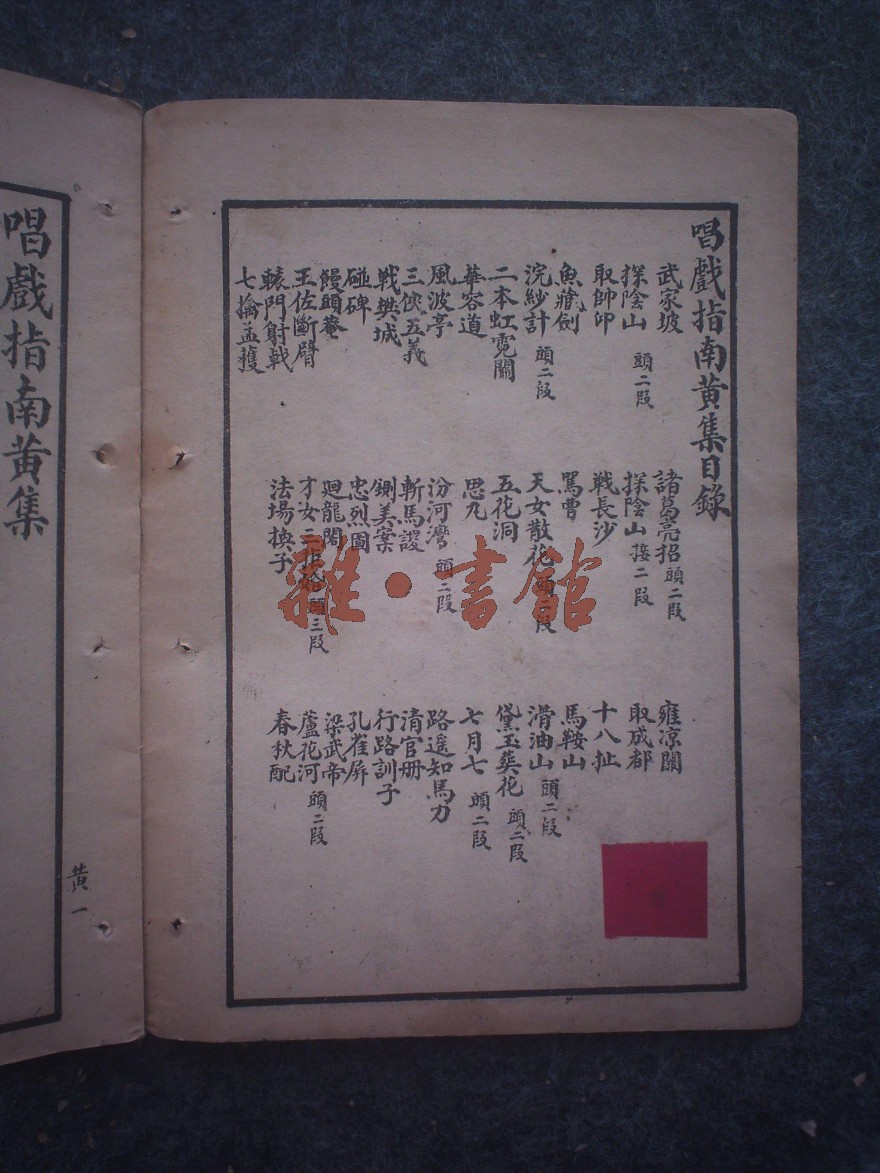 唱戲指南黃集目錄
武家坡
探陰山 頭二段
取帥印
魚藏劍
浣紗計 頭二段
二本虹霓關
華容道
風波亭
三俠五義
戰樊城
碰碑
饅頭菴
王佐斷臂
轅門射戟
七擒孟獲
諸葛亮招 頭二段
探陰山 接二段
戰長沙
罵曹
天女散花
五花洞
思凡
汾河灣 頭二段
斬馬謖
鍘美案
忠烈圖
廻龍閣
才女 頭三段
法場換子
雍凉關
取成都
十八扯
馬鞍山
滑油山 頭二段
黛玉葬花 頭二段
七月七 頭二段
路遥知馬力
清官册
行路訓子
孔雀屏
梁武帝
蘆花河 頭二段
春秋配
唱戲指南黃集
黃一
雜·書館